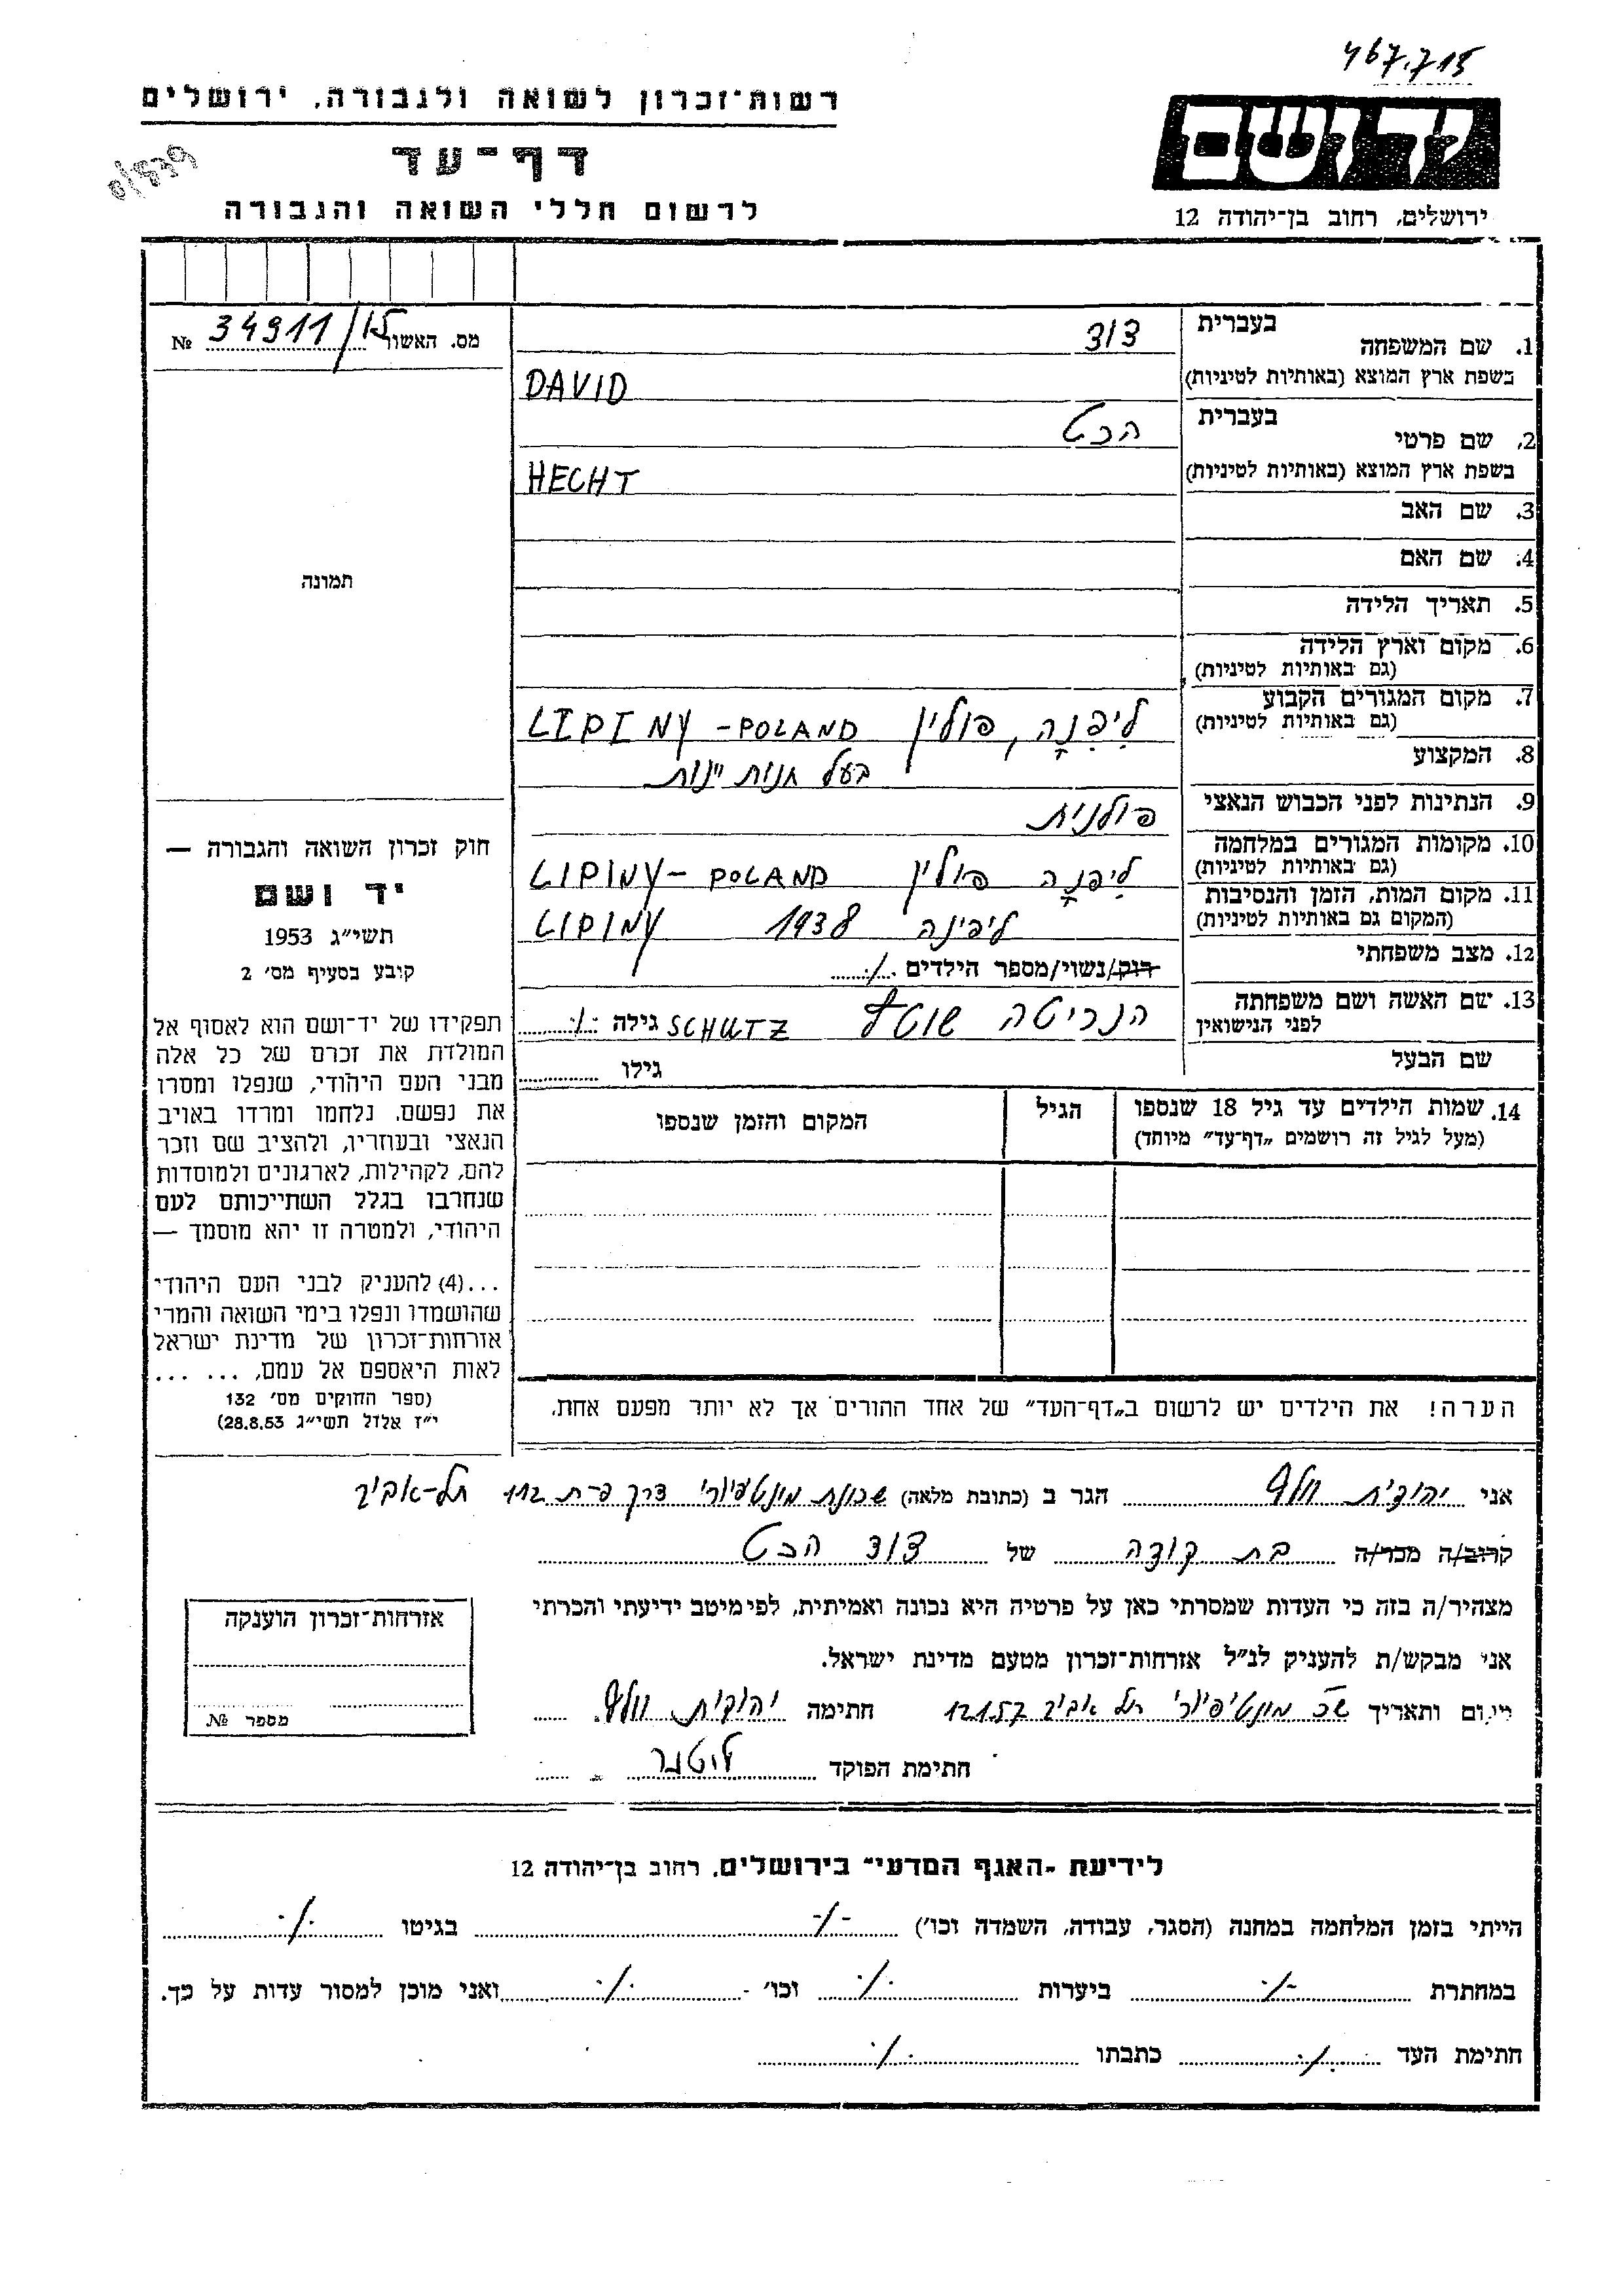 467.715
רשות־זכרון לשואה ולגבורה, ירושלים
ידושם
דף־עד
לרשום חללי השואה והגבורה
ירושלים, רחוב בן־יהודה 12
מס. האשור 34911 №
1. שם המשפחה בעברית דוד
בשפת ארץ המוצא (באותיות לטיניות) DAVID
2. שם פרטי בעברית הכט
בשפת ארץ המוצא (באותיות לטיניות) HECHT
3. שם האב
4. שם האם
תמונה
5. תאריך הלידה
6. מקום וארץ הלידה
(גם באותיות לטיניות)
7. מקום המגורים הקבוע ליפנה, פולין LIPINY – POLAND
(גם באותיות לטיניות)
8. המקצוע בעל חנות יינות
9. הנתינות לפני הכבוש הנאצי פולנית
10. מקומות המגורים במלחמה ליפנה פולין LIPINY – POLAND
(גם באותיות לטיניות)
11. מקום המות, הזמן והנסיבות ליפינה 1938 LIPINY
(המקום גם באותיות לטיניות)
12. מצב משפחתי רוק/נשוי/מספר הילדים ./.
13. שם האשה ושם משפחתה הנריטה SCHUTZ גילה ./.
לפני הנישואין
שם הבעל גילו
14. שמות הילדים עד גיל 18 שנספו הגיל המקום והזמן שנספו
(מעל לגיל זה רושמים „דף־עד״ מיוחד)
חוק זכרון השואה והגבורה —
יד ושם
תשי״ג 1953
קובע בסעיף מס׳ 2
תפקידו של יד־ושם הוא לאסוף אל
המולדת את זכרם של כל אלה
מבני העם היהודי, שנפלו ומסרו
את נפשם, נלחמו ומרדו באויב
הנאצי ובעוזריו, ולהציב שם וזכר
להם, לקהילות, לארגונים ולמוסדות
שנחרבו בגלל השתייכותם לעם
היהודי, ולמטרה זו יהא מוסמך —
...(4) להעניק לבני העם היהודי
שהושמדו ונפלו בימי השואה והמרי
אזרחות־זכרון של מדינת ישראל
לאות היאספם אל עמם, ... ...
(ספר החוקים מס׳ 132
י״ז אלול תשי״ג 28.8.53)
הערה! את הילדים יש לרשום ב„דף־העד״ של אחד ההורים אך לא יותר מפעם אחת.
אני יהודית וולף הגר ב (כתובת מלאה) שכונת מונטיפיורי דרך פ־ת 112 תל–אביב
קרוב/ה מכר/ה בת דודה של דוד הכט
מצהיר/ה בזה כי העדות שמסרתי כאן על פרטיה היא נכונה ואמיתית, לפי מיטב ידיעתי והכרתי
אני מבקש/ת להעניק לנ״ל אזרחות־זכרון מטעם מדינת ישראל.
ותאריך שכ מונטיפיורי תל אביב 12.1.57 חתימה יהודית וולף
חתימת הפוקד
אזרחות־זכרון הוענקה
מספר №
לידיעת ״האגף המדעי״ בירושלים, רחוב בן־יהודה 12
הייתי בזמן המלחמה במחנה (הסגר, עבודה, השמדה וכו׳) -/- בגיטו ./.
במחתרת ./- ביערות ./. וכו׳ ./. ואני מוכן למסור עדות על כך.
חתימת העד ./. כתבתו ./.